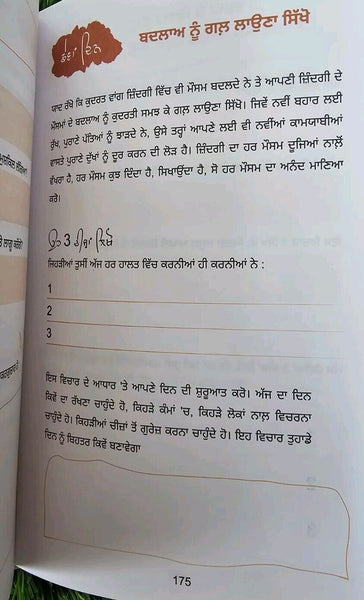 ਛੇਵਾਂ ਦਿਨ
ਬਦਲਾਅ ਨੂੰ ਗਲ਼ ਲਾਉਣਾ ਸਿੱਖੋ
ਯਾਦ ਰੱਖੋ ਕਿ ਕੁਦਰਤ ਵਾਂਗ ਜ਼ਿੰਦਗੀ ਵਿੱਚ ਵੀ ਮੌਸਮ ਬਦਲਦੇ ਨੇ ਤੇ ਆਪਣੀ ਜ਼ਿੰਦਗੀ ਦੇ
ਮੌਸਮਾਂ ਦੇ ਬਦਲਾਅ ਨੂੰ ਕੁਦਰਤੀ ਸਮਝ ਕੇ ਗਲ਼ ਲਾਉਣਾ ਸਿੱਖੋ। ਜਿਵੇਂ ਨਵੀਂ ਬਹਾਰ ਲਈ
ਰੁੱਖ, ਪੁਰਾਣੇ ਪੱਤਿਆਂ ਨੂੰ ਝਾੜਦੇ ਨੇ, ਉਸੇ ਤਰ੍ਹਾਂ ਆਪਣੇ ਲਈ ਵੀ ਨਵੀਆਂ ਕਾਮਯਾਬੀਆਂ
ਵਾਸਤੇ ਪੁਰਾਣੇ ਦੁੱਖਾਂ ਨੂੰ ਦੂਰ ਕਰਨ ਦੀ ਲੋੜ ਹੈ। ਜ਼ਿੰਦਗੀ ਦਾ ਹਰ ਮੌਸਮ ਦੂਜਿਆਂ ਨਾਲੋਂ
ਵੱਖਰਾ ਹੈ, ਹਰ ਮੌਸਮ ਕੁਝ ਦਿੰਦਾ ਹੈ, ਸਿਖਾਉਂਦਾ ਹੈ, ਸੋ ਹਰ ਮੌਸਮ ਦਾ ਅਨੰਦ ਮਾਣਿਆ
ਕਰੋ।
ਉਹ 3 ਚੀਜ਼ਾਂ ਲਿਖੋ
ਜਿਹੜੀਆਂ ਤੁਸੀਂ ਅੱਜ ਹਰ ਹਾਲਤ ਵਿੱਚ ਕਰਨੀਆਂ ਹੀ ਕਰਨੀਆਂ ਨੇ :
1
2
3
ਇਸ ਵਿਚਾਰ ਦੇ ਆਧਾਰ 'ਤੇ ਆਪਣੇ ਦਿਨ ਦੀ ਸ਼ੁਰੂਆਤ ਕਰੋ। ਅੱਜ ਦਾ ਦਿਨ
ਕਿਵੇਂ ਦਾ ਰੱਖਣਾ ਚਾਹੁੰਦੇ ਹੋ, ਕਿਹੜੇ ਕੰਮਾਂ 'ਚ, ਕਿਹੜੇ ਲੋਕਾਂ ਨਾਲ਼ ਵਿਚਰਨਾ
ਚਾਹੁੰਦੇ ਹੋ। ਕਿਹੜੀਆਂ ਚੀਜ਼ਾਂ ਤੋਂ ਗੁਰੇਜ਼ ਕਰਨਾ ਚਾਹੁੰਦੇ ਹੋ। ਇਹ ਵਿਚਾਰ ਤੁਹਾਡੇ
ਦਿਨ ਨੂੰ ਬਿਹਤਰ ਕਿਵੇਂ ਬਣਾਵੇਗਾ
175